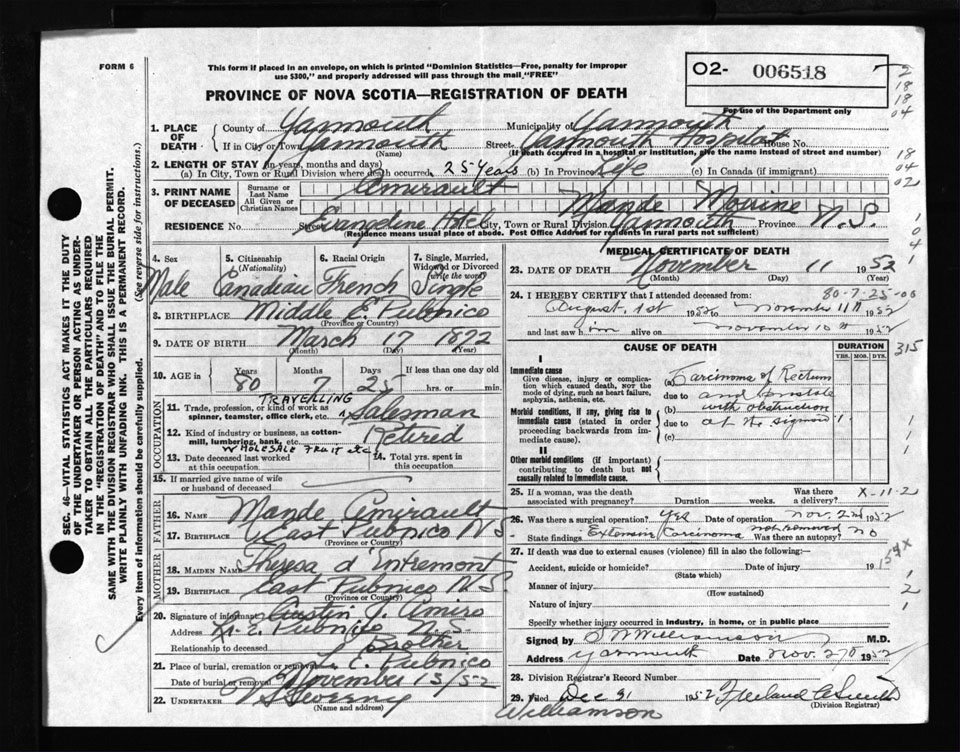 FORM 6
This form if placed in an envelope, on which is printed "Dominion Statistics—Free, penalty for improper
use $300," and properly addressed will pass through the mail "FREE"
PROVINCE OF NOVA SCOTIA—REGISTRATION OF DEATH
O2- 006518
For use of the Department only
1. PLACE OF DEATH
County of Yarmouth Municipality of Yarmouth
If in City or Town Yarmouth Street Yarmouth Hospital House No.
(Name) (If death occurred in a hospital or institution, give the name instead of street and number)
2. LENGTH OF STAY (in years, months and days)
(a) In City, Town or Rural Division where death occurred 25 Years (b) In Province Life (c) In Canada (if immigrant)
3. PRINT NAME OF DECEASED
Surname or Last Name Amirault
All Given or Christian Names Mande
RESIDENCE No. Street Evangeline Hotel City, Town or Rural Division Yarmouth Province N.S.
(Residence means usual place of abode. Post Office Address for residents in rural parts not sufficient)
4. Sex Male
5. Citizenship (Nationality) Canadian
6. Racial Origin French
7. Single, Married, Widowed or Divorced (write the word) Single
8. BIRTHPLACE Middle E. Pubnico
(Province or Country)
9. DATE OF BIRTH March 17 1872
(Month) (Day) (Year)
10. AGE in Years 80 Months 7 Days 25 If less than one day old
hrs. or min.
OCCUPATION
11. Trade, profession, or kind of work as spinner, teamster, office clerk, etc. TRAVELLING Salesman
12. Kind of industry or business, as cotton-mill, lumbering, bank, etc. Retired
WHOLESALE FRUIT etc
13. Date deceased last worked at this occupation
14. Total yrs. spent in this occupation
15. If married give name of wife or husband of deceased
FATHER
16. NAME Mande Amirault
17. BIRTHPLACE East Pubnico N S
(Province or Country)
MOTHER
18. MAIDEN NAME Theresa d'Entremont
19. BIRTHPLACE East Pubnico N.S.
(Province or Country)
20. Signature of informant Austin J. Amiro
Address Pubnico N.S
Relationship to deceased Brother
21. Place of burial, cremation or removal E. Pubnico
Date of burial or removal November 13/52
22. UNDERTAKER
(Name and address)
MEDICAL CERTIFICATE OF DEATH
23. DATE OF DEATH November 11 1952
(Month) (Day) (Year)
80-7-25-00
24. I HEREBY CERTIFY that I attended deceased from:
August 1st 1952 to November 11th 1952
and last saw him alive on November 10th 1952
CAUSE OF DEATH
DURATION
YRS. MOS. DYS.
I
Immediate cause
Give disease, injury or complication which caused death, NOT the mode of dying, such as heart failure, asphyxia, asthenia, etc.
(a) Carcinoma of Rectum
due to and
Morbid conditions, if any, giving rise to immediate cause (stated in order proceeding backwards from immediate cause).
(b) with obstruction
due to at the sigmoid
(c)
II
Other morbid conditions (if important) contributing to death but not causally related to immediate cause.
25. If a woman, was the death associated with pregnancy? Duration weeks. Was there a delivery? X-11-2
26. Was there a surgical operation? yes Date of operation Nov. 2nd 1952
State findings Extensive Carcinoma not removed Was there an autopsy? No
27. If death was due to external causes (violence) fill in also the following:—
Accident, suicide or homicide? Date of injury 19
(State which)
Manner of injury
(How sustained)
Nature of injury
Specify whether injury occurred in industry, in home, or in public place
Signed by S W Williamson M.D.
Address Yarmouth Date Nov. 1952
28. Division Registrar's Record Number
29. Filed Dec 31 1952
(Division Registrar)
Williamson
315
(See reverse side for instructions.)
Every item of information should be carefully supplied.
SEC. 46—VITAL STATISTICS ACT MAKES IT THE DUTY
OF THE UNDERTAKER OR PERSON ACTING AS UNDER-
TAKER TO OBTAIN ALL THE PARTICULARS REQUIRED
IN THE "REGISTRATION OF DEATH" AND TO FILE THE
SAME WITH THE DIVISION REGISTRAR WHO SHALL ISSUE THE BURIAL PERMIT.
WRITE PLAINLY WITH UNFADING INK. THIS IS A PERMANENT RECORD.